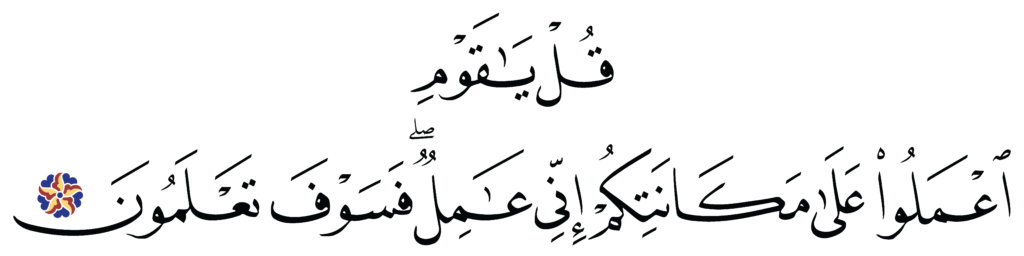 قُلْ يَـٰقَوْمِ
ٱعْمَلُوا۟ عَلَىٰ مَكَانَتِكُمْ إِنِّى عَـٰمِلٌ ۖ فَسَوْفَ تَعْلَمُونَ